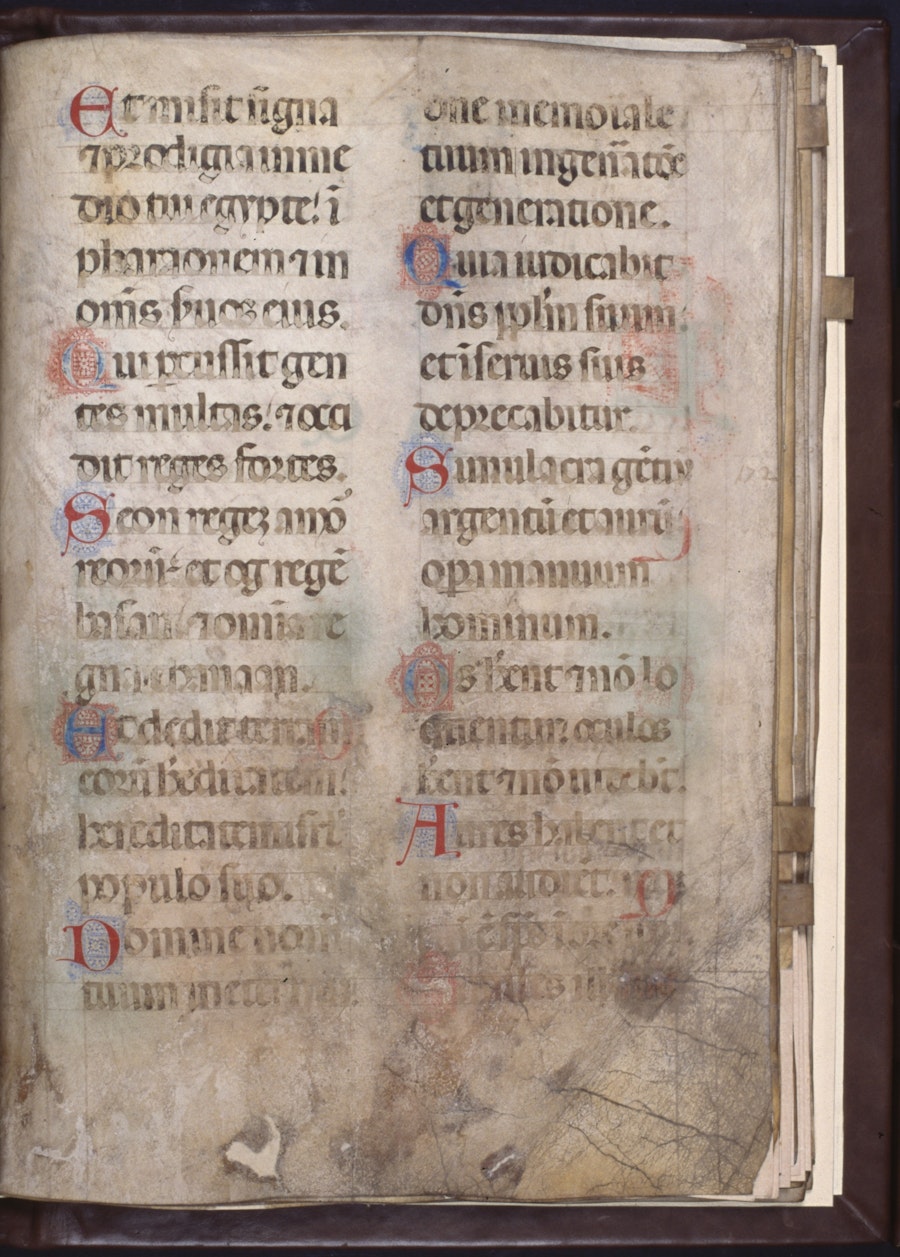 Et misit signa
⁊ prodigia in me
dio tui egypte! ī
pharaonem ⁊ in
om̄s suos eius.
Qui percussit gen
tes multas! ⁊ occi
dit reges fortes.
Seon regē amo
et og regē
basan! ⁊ omia re
gna chanaan.
Et dedit terram
eorū heditatem!
hereditatem isrl
populo suo.
Domine nom
tuum in etern
one memoriale
tuum in gen̄atōe
et generatione.
Quia iudicabit
dn̄s pplm suum:
et ī seruis suis
deprecabitur.
Simulacra gētiū
argentū et aurū:
opa manuum
hominum.
Os hent ⁊ nō lo
quentur: oculos
hent ⁊ nō uidebt.
Aures habent et
non audiēt: